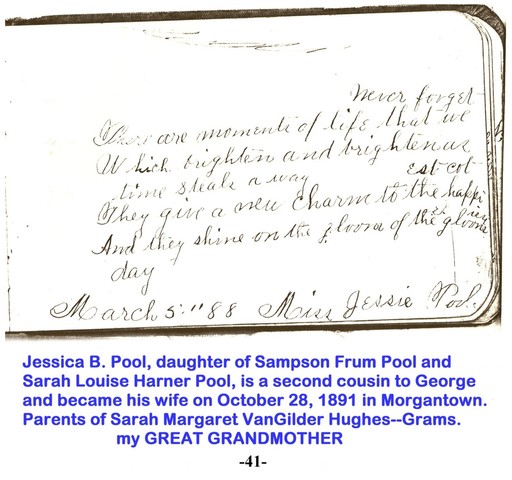 never forget
There are moments of life that we
Which brighten and brighten as
time steals a way
They give a new charm to the happi
est
And they shine on the gloom of the
day
March 5." 88 Miss Jessie Pool.
Jessica B. Pool, daughter of Sampson Frum Pool and
Sarah Louise Harner Pool, is a second cousin to George
and became his wife on October 28, 1891 in Morgantown.
Parents of Sarah Margaret VanGilder Hughes--Grams.
my GREAT GRANDMOTHER
-41-